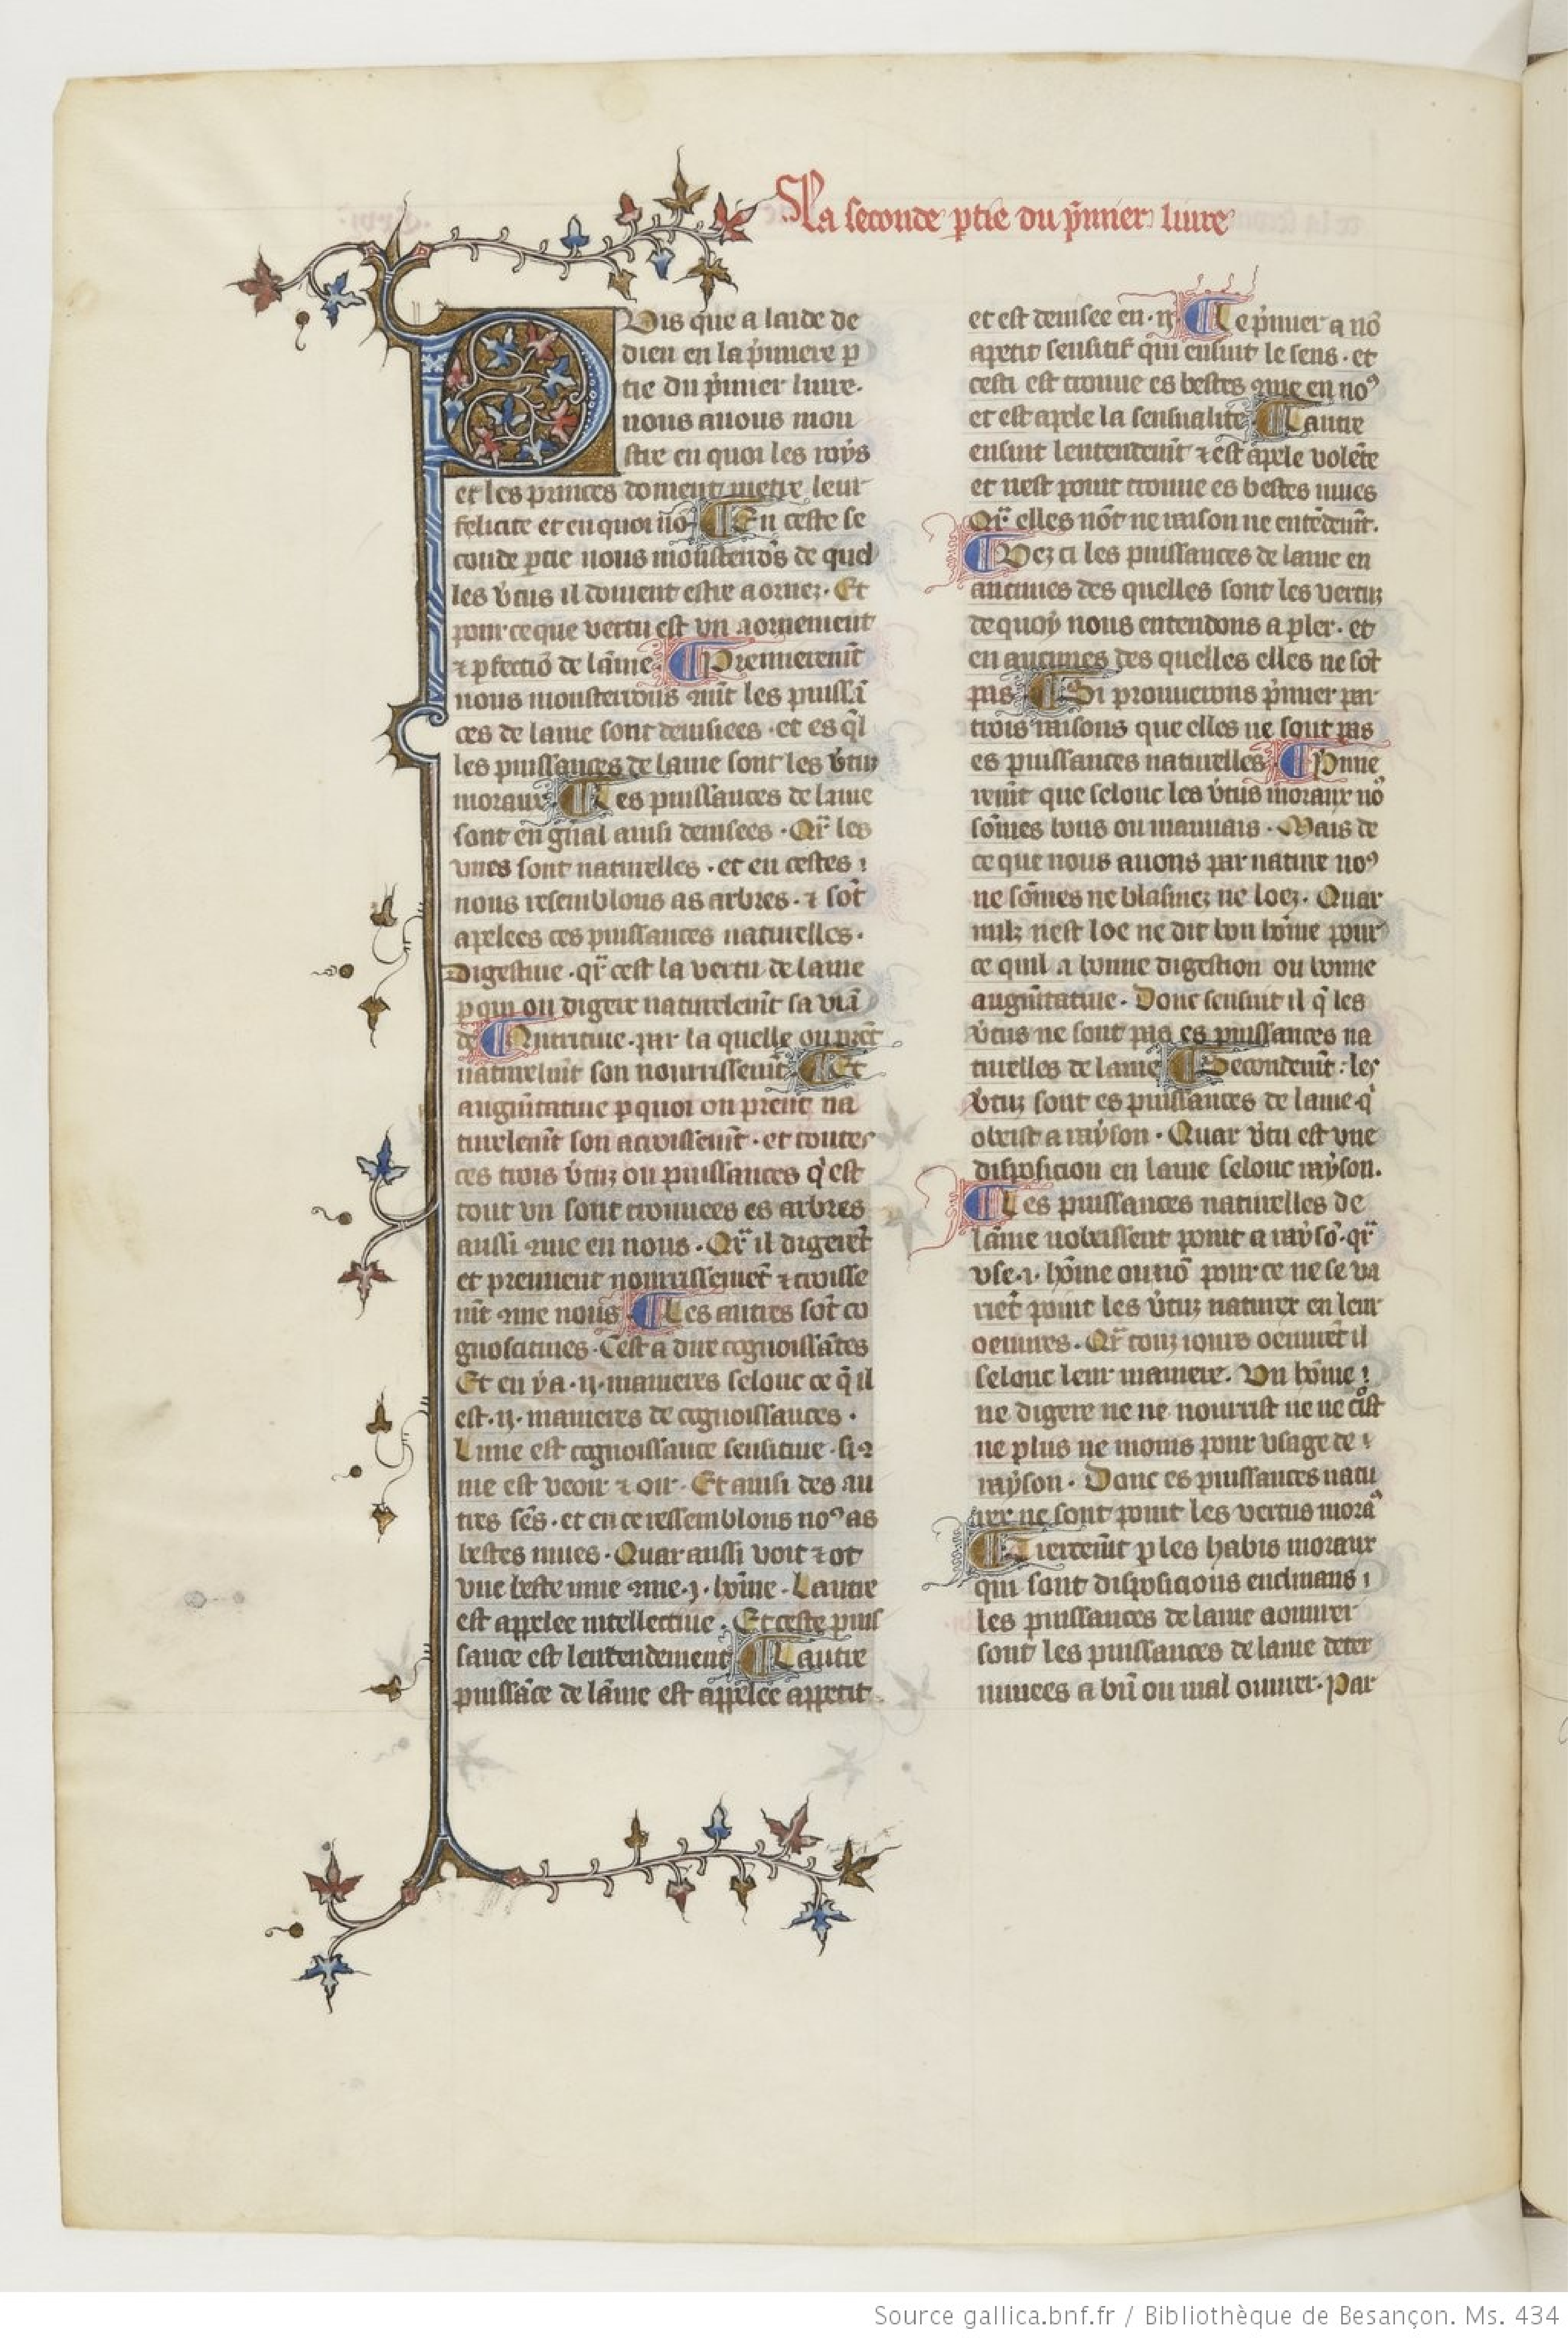 La seconde ꝑtie du p̾mier liure
Puis que a laide de
dieu en la p̾miere ꝑ
tie du p̾mier liure.
nous auons mou
stre en quoi les roys
et les princes doiuent metre leur
felicite et en quoi nō ¶ En ceste se
conde ꝑtie nous moustrrōs de quel
les v̾tus il doiuent estre aornez. Et
pour ce que vertu est vn aornement
⁊ ꝑfectiō de lāme ¶ Premierem̄t
nous monsterrons ꝯm̄t les puissā
ces de lame sont deuisees. et es q̄l
les puissances de lame sont les v̾tuz
moraux ¶ Les puissances de lame
sont en gn̄al ainsi deuisees. Qr̄ les
vnes sont naturelles. et en cestes
nous resemblons as arbres. ⁊ sōt
apelees ces puissances naturelles.
Digestiue. qr̄ cest la vertu de lame
ꝑ qui on digere naturelem̄t sa viā
de ¶ Nutritiue. par la quelle on prēt
naturelm̄t son nourrissem̄t ¶ Et
augm̄tatiue ꝑ quoi on prent na
turelem̄t son acroissem̄t. et toutes
ces trois v̾tuz ou puissances q̄ est
tout vn sont trouuees es arbres
aussi ꝯme en nous. Qr̄ il digerēt
et prennent nourrissemēt ⁊ croisse
nt ꝯme nous ¶ Les autres sōt co
gnoscitiues. Cest a dire cognoissātes
Et en y a .ii. manieres selonc ce q̄ il
est .ii. manieres de cognoissances.
Lune est cognoissance sensitiue. si ꝯ
me est veoir ⁊ oir. Et ainsi des au
tres sēs. et en ce ressemblons noꝰ as
bestes mues. Quar aussi voit ⁊ ot
vne beste mue ꝯme .i. hōme. Lautre
est appelee intellectiue. Et ceste puis
sance est lentendement ¶ Lautre
puissāce de lāme est appelee appetit
et est deuisee en .ii. ¶ Le p̾mier a nō
apetit sensitif qui ensuit le sens. et
cesti est trouue es bestes ꝯme en noꝰ
et est apele la sensualite ¶ Lautre
ensuit lentendem̄t ⁊ est apele volēte
et nest point trouue es bestes mues
Qr̄ elles nōt ne raison ne entēdem̄t.
¶ Vez ci les puissances de lame en
aucunes des quelles sont les vertuz
de quoy nous entendons a ꝑler. et
en aucunes des quelles elles ne sōt
pas ¶ Si prouuerons p̾mier par
trois raisons que elles ne sont pas
es puissances naturelles ¶ P̾mie
rem̄t que selonc les v̾tus moraux nō
sōmes bons ou mauuais. Mais de
ce que nous auons par nature noꝰ
ne sōmes ne blasmez ne loez. Quar
nulz nest loe ne dit bon hōme pour
ce quil a bonne digestion ou bonne
augm̄tatiue. Donc sensuit il q̄ les
v̾tus ne sont pas es puissances na
turelles de lame ¶ Secondem̄t: les
v̾tuz sont es puissances de lame q̄
obeist a rayson. Quar v̾tu est vne
disposicion en lame selonc rayson.
¶ Les puissances naturelles de
lāme nobeissent point a raysō. qr̄
vse .i. hōme ou nō pour ce ne se va
riēt point les v̾tuz naturex en leur
oeuures. Qr̄ touz iours oeuurēt il
selonc leur maniere. Vn hōme
ne digere ne ne nourrist ne ne c̄ist
ne plus ne moins pour vsage de
rayson. Donc es puissances natu
rex ne sont point les vertus mora
¶ Tiercem̄t ꝑ les habis moraux
qui sont disposicions enclinans
les puissances de lame a ouurer
sont les puissances de lame deter
minees a bn̄ ou mal ouurer. Par
Source gallica.bnf.fr / Bibliothèque de Besançon. Ms. 434